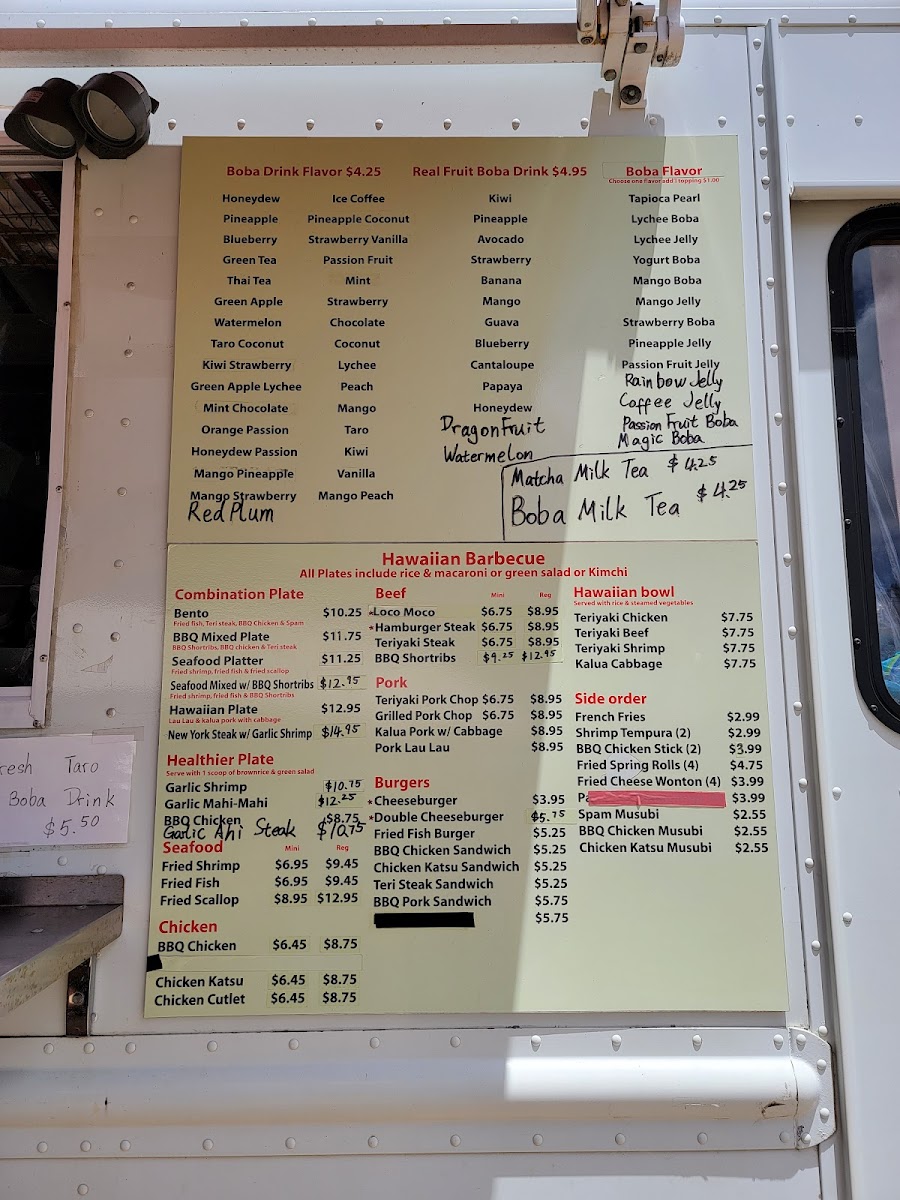 Boba Drink Flavor $4.25
Honeydew
Pineapple
Blueberry
Green Tea
Thai Tea
Green Apple
Watermelon
Taro Coconut
Kiwi Strawberry
Green Apple Lychee
Mint Chocolate
Orange Passion
Honeydew Passion
Mango Pineapple
Mango Strawberry
Red Plum
Ice Coffee
Pineapple Coconut
Strawberry Vanilla
Passion Fruit
Mint
Strawberry
Chocolate
Coconut
Lychee
Peach
Mango
Taro
Kiwi
Vanilla
Mango Peach
Real Fruit Boba Drink $4.95
Kiwi
Pineapple
Avocado
Strawberry
Banana
Mango
Guava
Blueberry
Cantaloupe
Papaya
Honeydew
DragonFruit
Watermelon
Boba Flavor
Choose one flavor add 1 topping $1.00
Tapioca Pearl
Lychee Boba
Lychee Jelly
Yogurt Boba
Mango Boba
Mango Jelly
Strawberry Boba
Pineapple Jelly
Passion Fruit Jelly
Rainbow Jelly
Coffee Jelly
Passion Fruit Boba
Magic Boba
Matcha Milk Tea $4.25
Boba Milk Tea $4.25
Hawaiian Barbecue
All Plates include rice & macaroni or green salad or Kimchi
Combination Plate
Bento $10.25
Fried fish, Teri steak, BBQ Chicken & Spam
BBQ Mixed Plate $11.75
BBQ Shortribs, BBQ chicken & Teri steak
Seafood Platter $11.25
Fried shrimp, fried fish & fried scallop
Seafood Mixed w/ BBQ Shortribs $12.95
Fried shrimp, fried fish & BBQ Shortribs
Hawaiian Plate $12.95
Lau Lau & kalua pork with cabbage
New York Steak w/ Garlic Shrimp $14.95
Healthier Plate
Serve with 1 scoop of brownrice & green salad
Garlic Shrimp $10.75
Garlic Mahi-Mahi $12.25
BBQ Chicken $8.75
Garlic Ahi Steak $10.75
Seafood Mini Reg
Fried Shrimp $6.95 $9.45
Fried Fish $6.95 $9.45
Fried Scallop $8.95 $12.95
Chicken
BBQ Chicken $6.45 $8.75
Chicken Katsu $6.45 $8.75
Chicken Cutlet $6.45 $8.75
Beef Mini Reg
*Loco Moco $6.75 $8.95
*Hamburger Steak $6.75 $8.95
Teriyaki Steak $6.75 $8.95
BBQ Shortribs $9.25 $12.95
Pork
Teriyaki Pork Chop $6.75 $8.95
Grilled Pork Chop $6.75 $8.95
Kalua Pork w/ Cabbage $8.95
Pork Lau Lau $8.95
Burgers
*Cheeseburger $3.95
*Double Cheeseburger $5.75
Fried Fish Burger $5.25
BBQ Chicken Sandwich $5.25
Chicken Katsu Sandwich $5.25
Teri Steak Sandwich $5.25
BBQ Pork Sandwich $5.75
$5.75
Hawaiian bowl
Served with rice & steamed vegetables
Teriyaki Chicken $7.75
Teriyaki Beef $7.75
Teriyaki Shrimp $7.75
Kalua Cabbage $7.75
Side order
French Fries $2.99
Shrimp Tempura (2) $2.99
BBQ Chicken Stick (2) $3.99
Fried Spring Rolls (4) $4.75
Fried Cheese Wonton (4) $3.99
$3.99
Spam Musubi $2.55
BBQ Chicken Musubi $2.55
Chicken Katsu Musubi $2.55
Taro
Boba Drink
$5.50